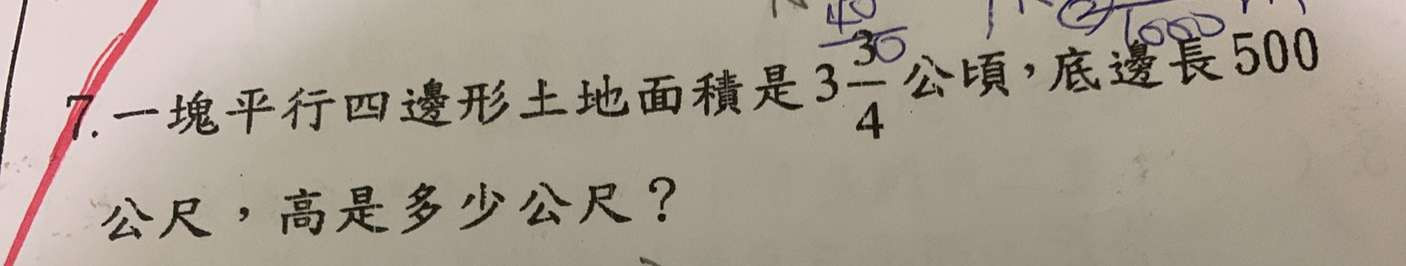 40
30
1000
7. 一塊平行四邊形土地面積是 3 3/4 公頃，底邊長 500
公尺，高是多少公尺？